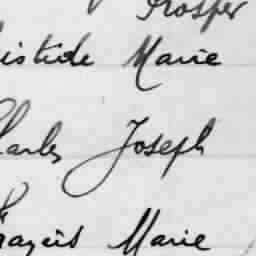 Prosper
istide Marie
harles Joseph
rançois Marie